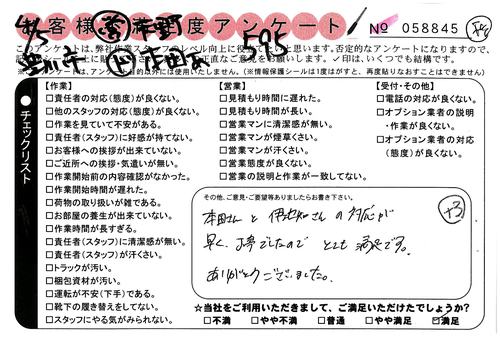 お客様満足度アンケート
№ 058845
595
このアンケートは、弊社作業スタッフのレベル向上に役立てたいと思います。否定的なアンケートになりますので、
正直なご意見をお願いします。✓印は、いくつでも結構です。
※本アンケートは、アンケート目的以外には使用いたしません。(※情報保護シールは1度はがすと、再度貼りなおすことはできません)
チェックリスト
【作業】
□責任者の対応(態度)が良くない。
□他のスタッフの対応(態度)が良くない。
□作業を見ていて不安がある。
□責任者(スタッフ)に好感が持てない。
□お客様への挨拶が出来ていない。
□ご近所への挨拶・気遣いが無い。
□作業開始前の内容確認がなかった。
□作業開始時間が遅れた。
□荷物の取り扱いが雑である。
□お部屋の養生が出来ていない。
□作業時間が長すぎる。
□責任者(スタッフ)に清潔感が無い。
□責任者(スタッフ)が汗くさい。
□トラックが汚い。
□梱包資材が汚い。
□運転が不安(下手)である。
□靴下の履き替えをしてない。
□スタッフにやる気がみられない。
【営業】
□見積もり時間に遅れた。
□見積もり時間が長い。
□営業マンに清潔感が無い。
□営業マンが煙草くさい。
□営業マンが汗くさい。
□営業態度が良くない。
□営業の説明と作業が一致してない。
【受付・その他】
□電話の対応が良くない。
□オプション業者の説明
・作業が良くない。
□オプション業者の対応
(態度)が良くない。
その他、ご意見・ご要望等ありましたらお書き下さい。
本田さんと伊地知さんの対応が
早く、丁寧でしたので とても満足です。
ありがとうございました。
+3
☆当社をご利用いただきまして、ご満足いただけたでしょうか?
□不満 □やや不満 □普通 □やや満足 ☑満足